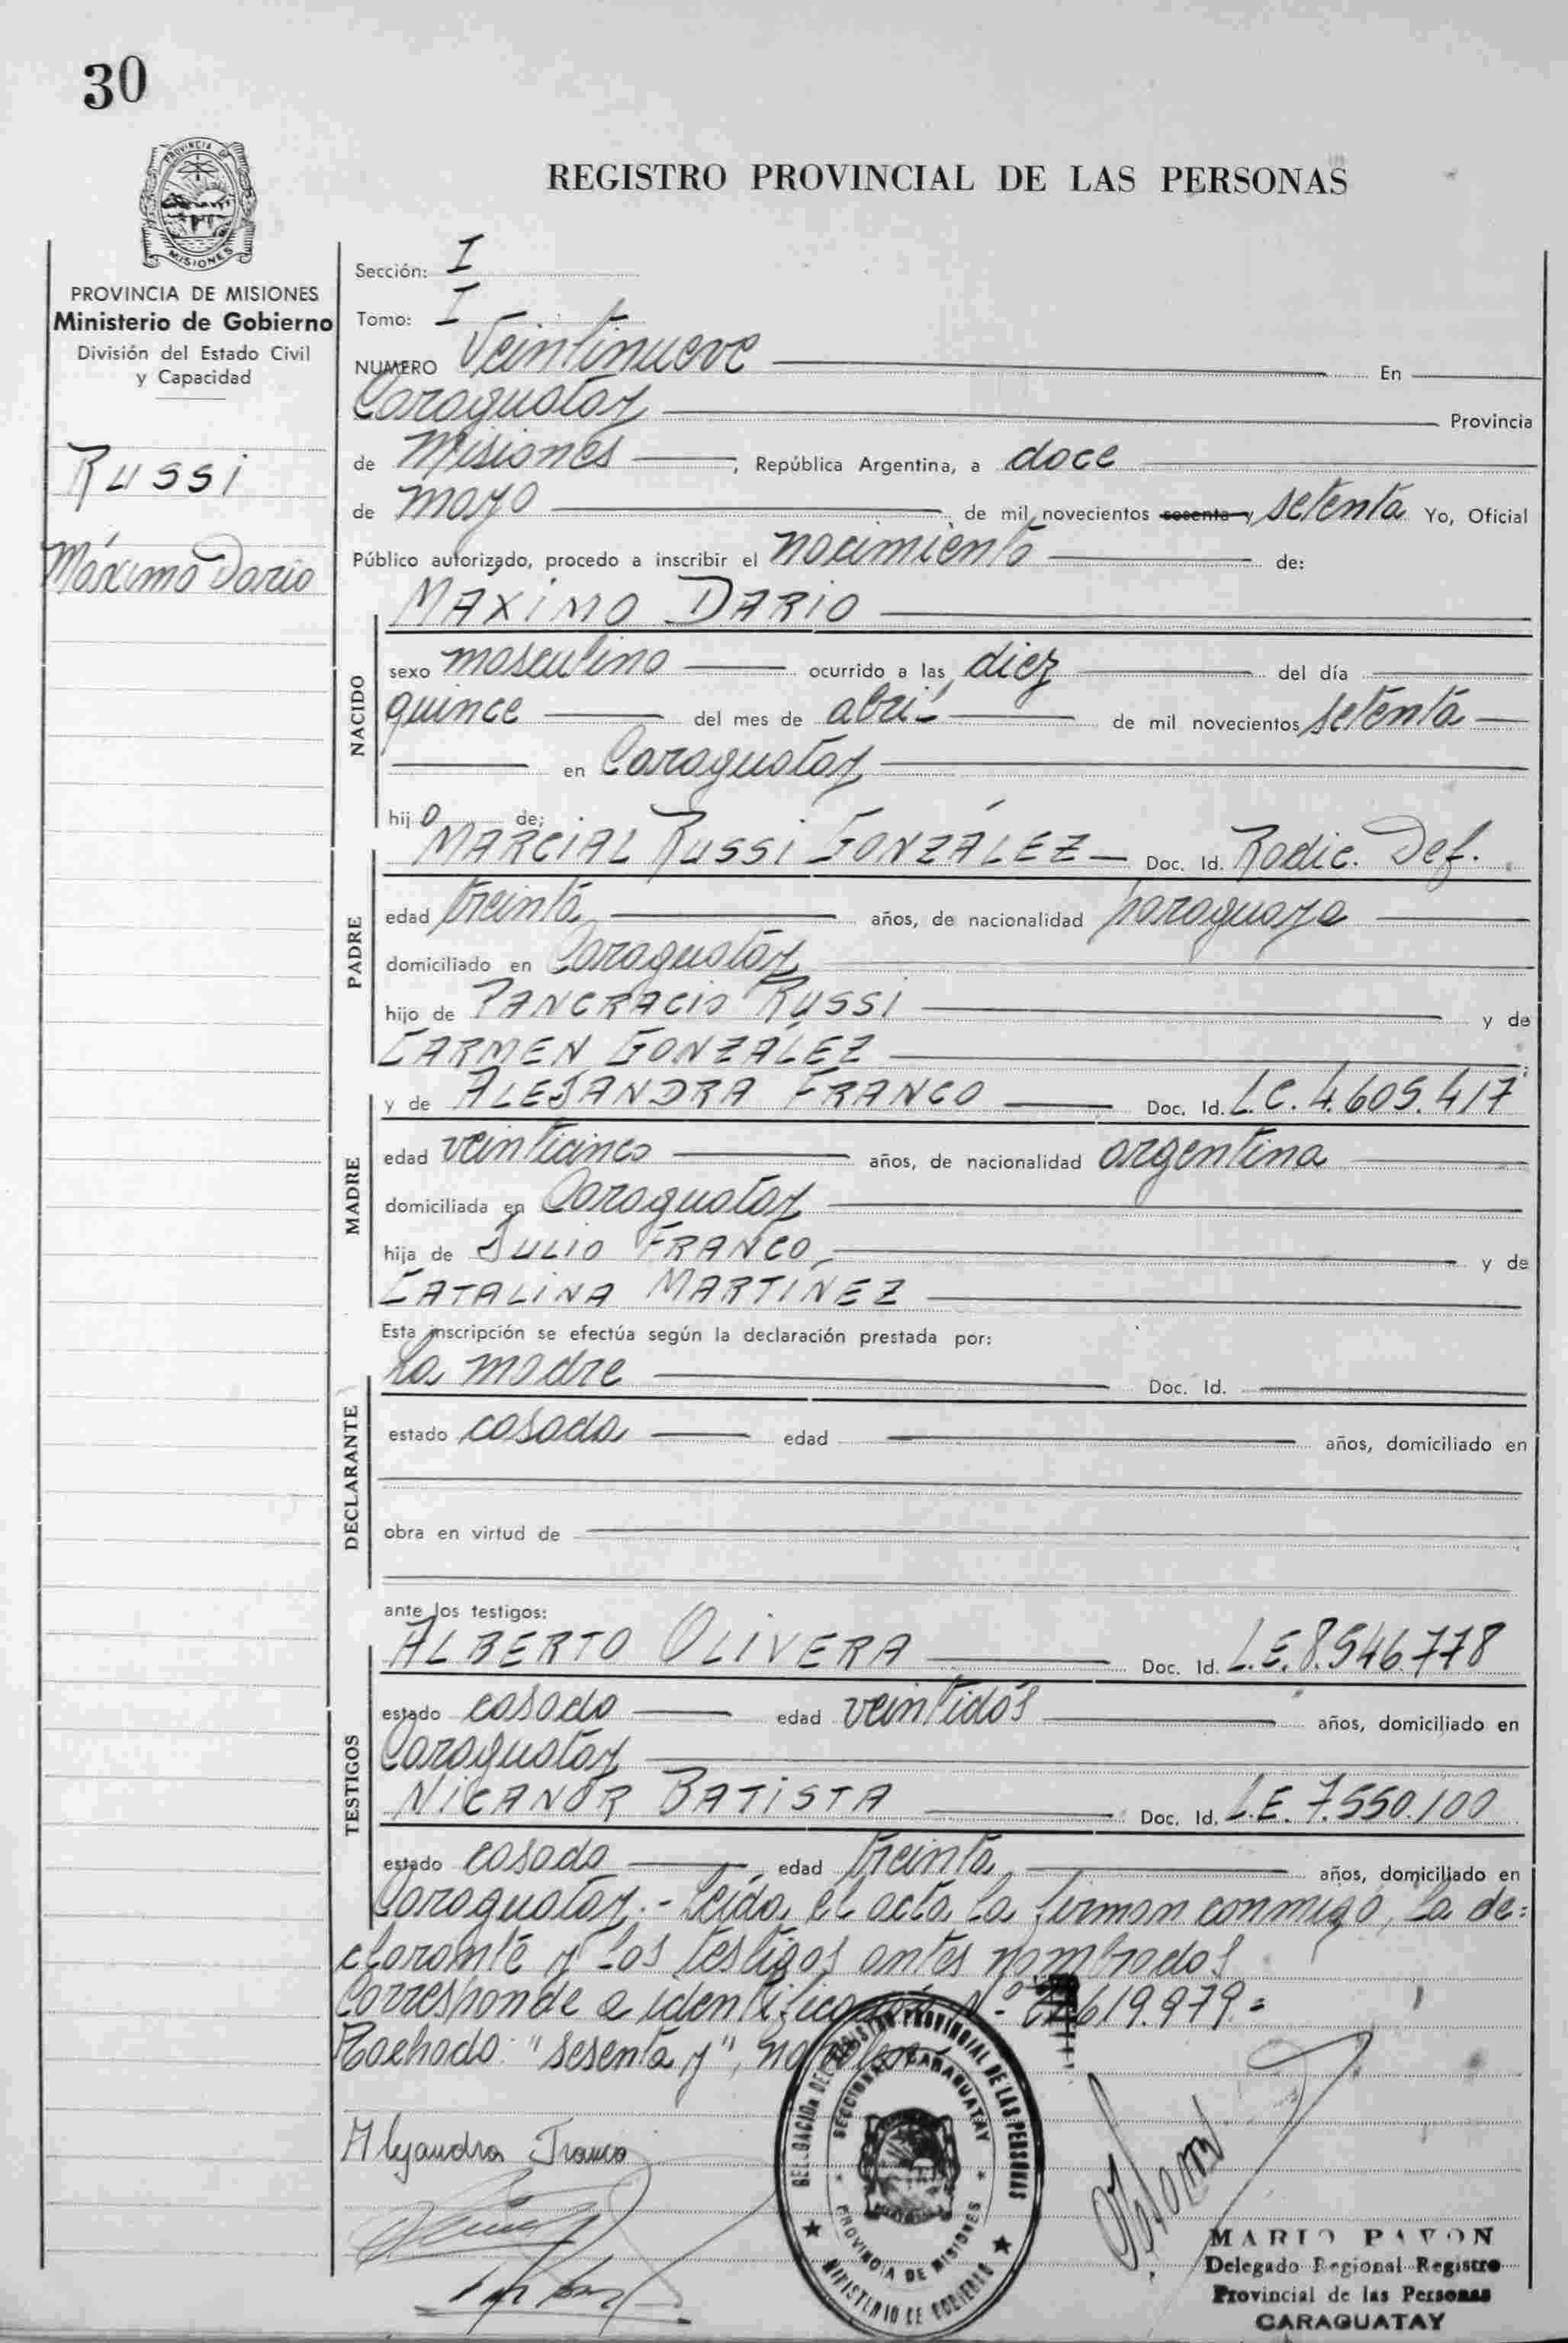 30
PROVINCIA DE
MISIONES
REGISTRO PROVINCIAL DE LAS PERSONAS
PROVINCIA DE MISIONES
Ministerio de Gobierno
División del Estado Civil
y Capacidad
Russi
Máximo Dario
Sección: I
Tomo: I
NUMERO Veintinueve En
Caraguatay Provincia
de Misiones, República Argentina, a doce
de mayo de mil novecientos sesenta y setenta Yo, Oficial
Público autorizado, procedo a inscribir el nacimiento de:
MÁXIMO DARIO
NACIDO
sexo masculino ocurrido a las diez del día
quince del mes de abril de mil novecientos setenta
en Caraguatay
hijo de;
PADRE
MARCIAL RUSSI GONZÁLEZ Doc. Id. Radic. Def.
edad treinta años, de nacionalidad paraguaya
domiciliado en Caraguatay
hijo de PANCRACIO RUSSI y de
CARMEN GONZALEZ
MADRE
y de ALEJANDRA FRANCO Doc. Id. L.C. 4.605.417
edad veinticinco años, de nacionalidad argentina
domiciliada en Caraguatay
hija de JULIO FRANCO y de
CATALINA MARTÍNEZ
Esta inscripción se efectúa según la declaración prestada por:
DECLARANTE
La madre Doc. Id.
estado casada edad años, domiciliado en
obra en virtud de
ante los testigos:
TESTIGOS
ALBERTO OLIVERA Doc. Id. L.E. 8.546.778
estado casado edad veintidós años, domiciliado en
Caraguatay
NICANOR BATISTA Doc. Id. L.E. 7.550.100
estado casado edad treinta años, domiciliado en
Caraguatay.- Leída el acta la firman conmigo, la de=
clarante y los testigos antes nombrados
Corresponde a identificación N.º 619.979.=
Tachado: "sesenta y", no vale.=
Alejandra Franco
DELEGACION DEL REGISTRO PROVINCIAL DE LAS PERSONAS
SECCIONAL CARAGUATAY
PROVINCIA DE MISIONES
MINISTERIO DE GOBIERNO
MARIO PAVON
Delegado Regional Registro
Provincial de las Personas
CARAGUATAY